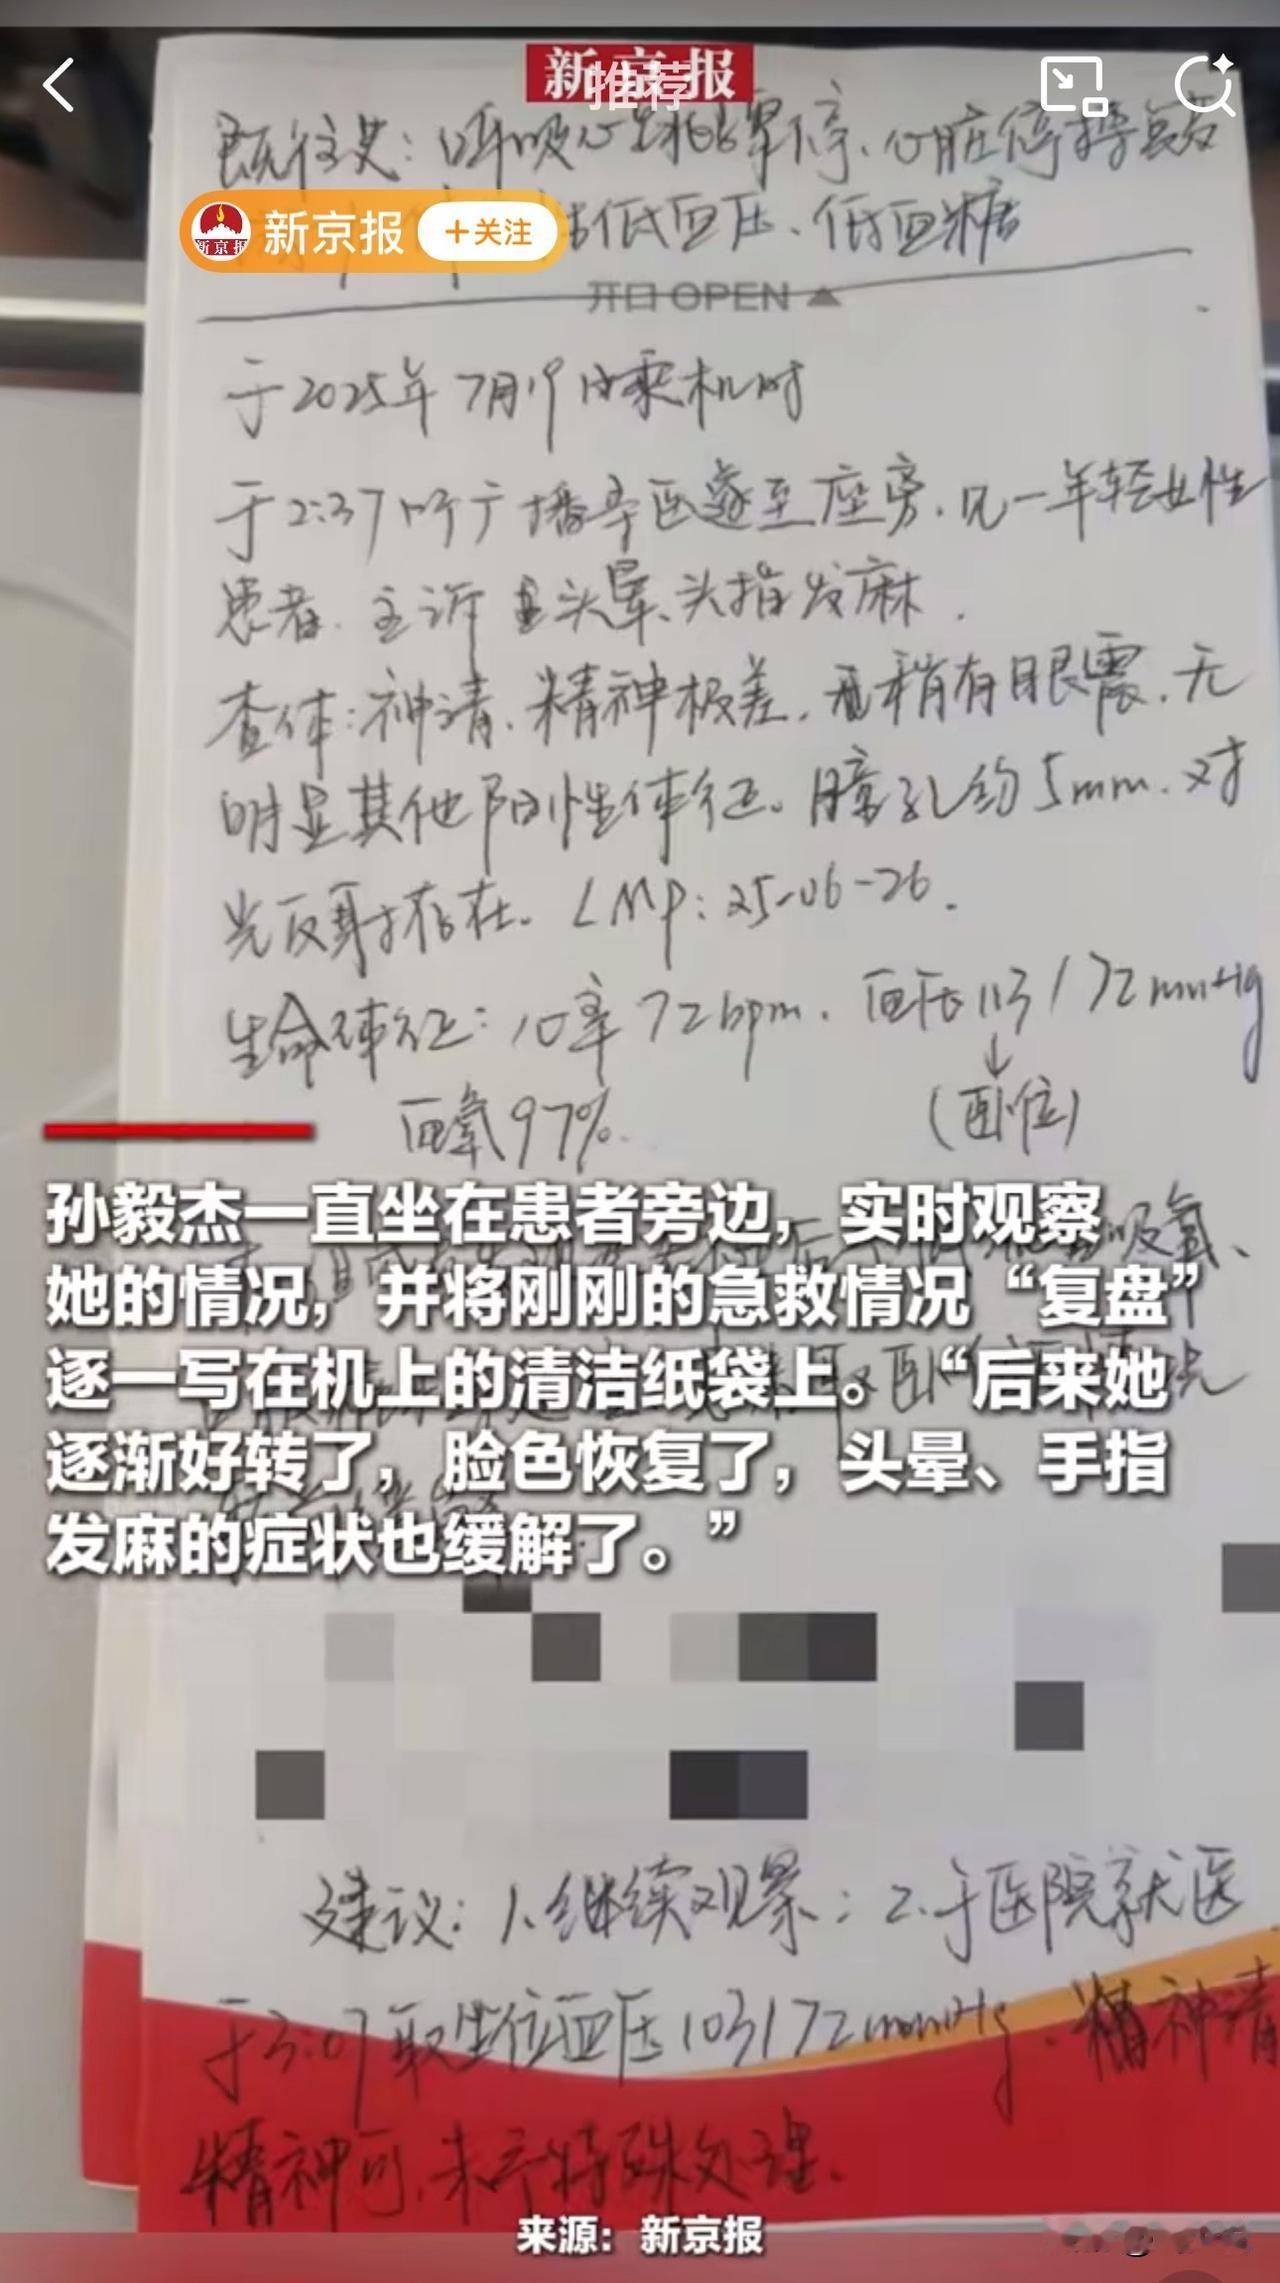 新京报
推荐
既往史：呼吸心跳骤停、心脏停搏
新京报 +关注
低血压、低血糖
开口 OPEN
于2025年7月19日乘机时
于2:37听广播寻医遂至座旁，见一年轻女性
患者，主诉头晕、头指发麻.
查体：神清，精神极差，稍有眼震，无
明显其他阳性体征。瞳孔约5mm，对
光反射存在。LMP：25-06-26.
生命体征：心率72bpm，血压113/72mmHg
血氧97%. (卧位)
吸氧、
孙毅杰一直坐在患者旁边，实时观察
她的情况，并将刚刚的急救情况“复盘”
逐一写在机上的清洁纸袋上。“后来她
逐渐好转了，脸色恢复了，头晕、手指
发麻的症状也缓解了。”
建议：1.继续观察；2.于医院就医
于3:07取坐位血压103/72mmHg，精神清
精神可，未予特殊处理.
来源：新京报